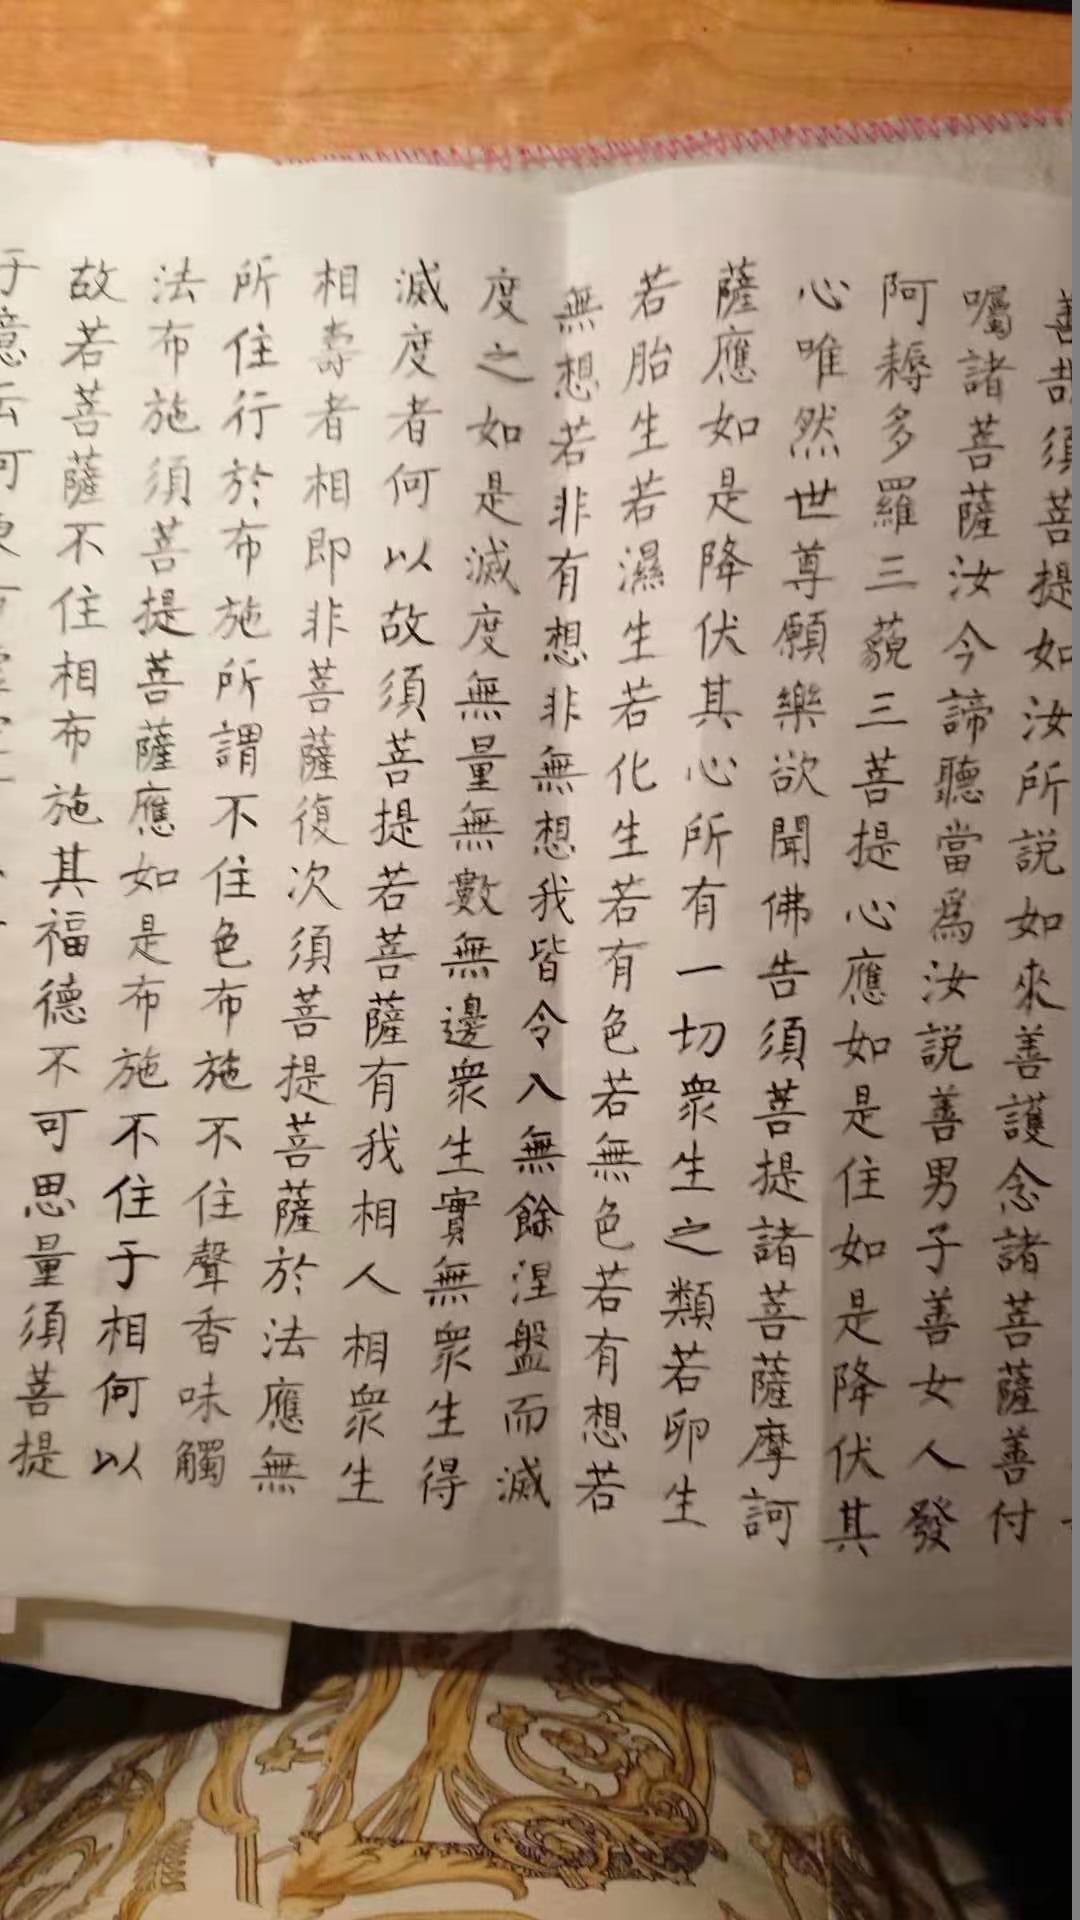 善哉須菩提如汝所説如來善護念諸菩薩善付
囑諸菩薩汝今諦聽當爲汝説善男子善女人發
阿耨多羅三藐三菩提心應如是住如是降伏其
心唯然世尊願樂欲聞佛告須菩提諸菩薩摩訶
薩應如是降伏其心所有一切衆生之類若卵生
若胎生若濕生若化生若有色若無色若有想若
無想若非有想非無想我皆令入無餘涅盤而滅
度之如是滅度無量無數無邊衆生實無衆生得
滅度者何以故須菩提若菩薩有我相人相衆生
相壽者相即非菩薩復次須菩提菩薩於法應無
所住行於布施所謂不住色布施不住聲香味觸
法布施須菩提菩薩應如是布施不住于相何以
故若菩薩不住相布施其福德不可思量須菩提
于意云何